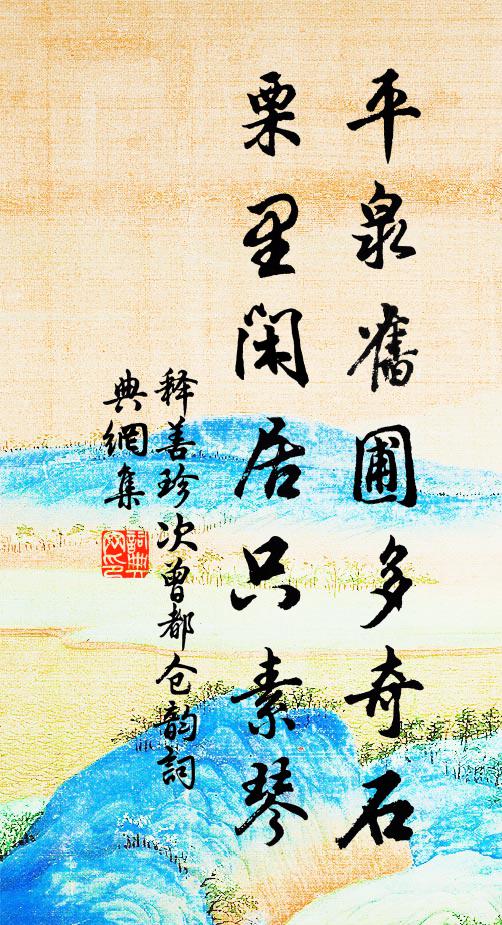 平泉舊圃多奇石
栗里閑居只素琴
释善珍次曾都仓韵詞
典網集
詞典
网印